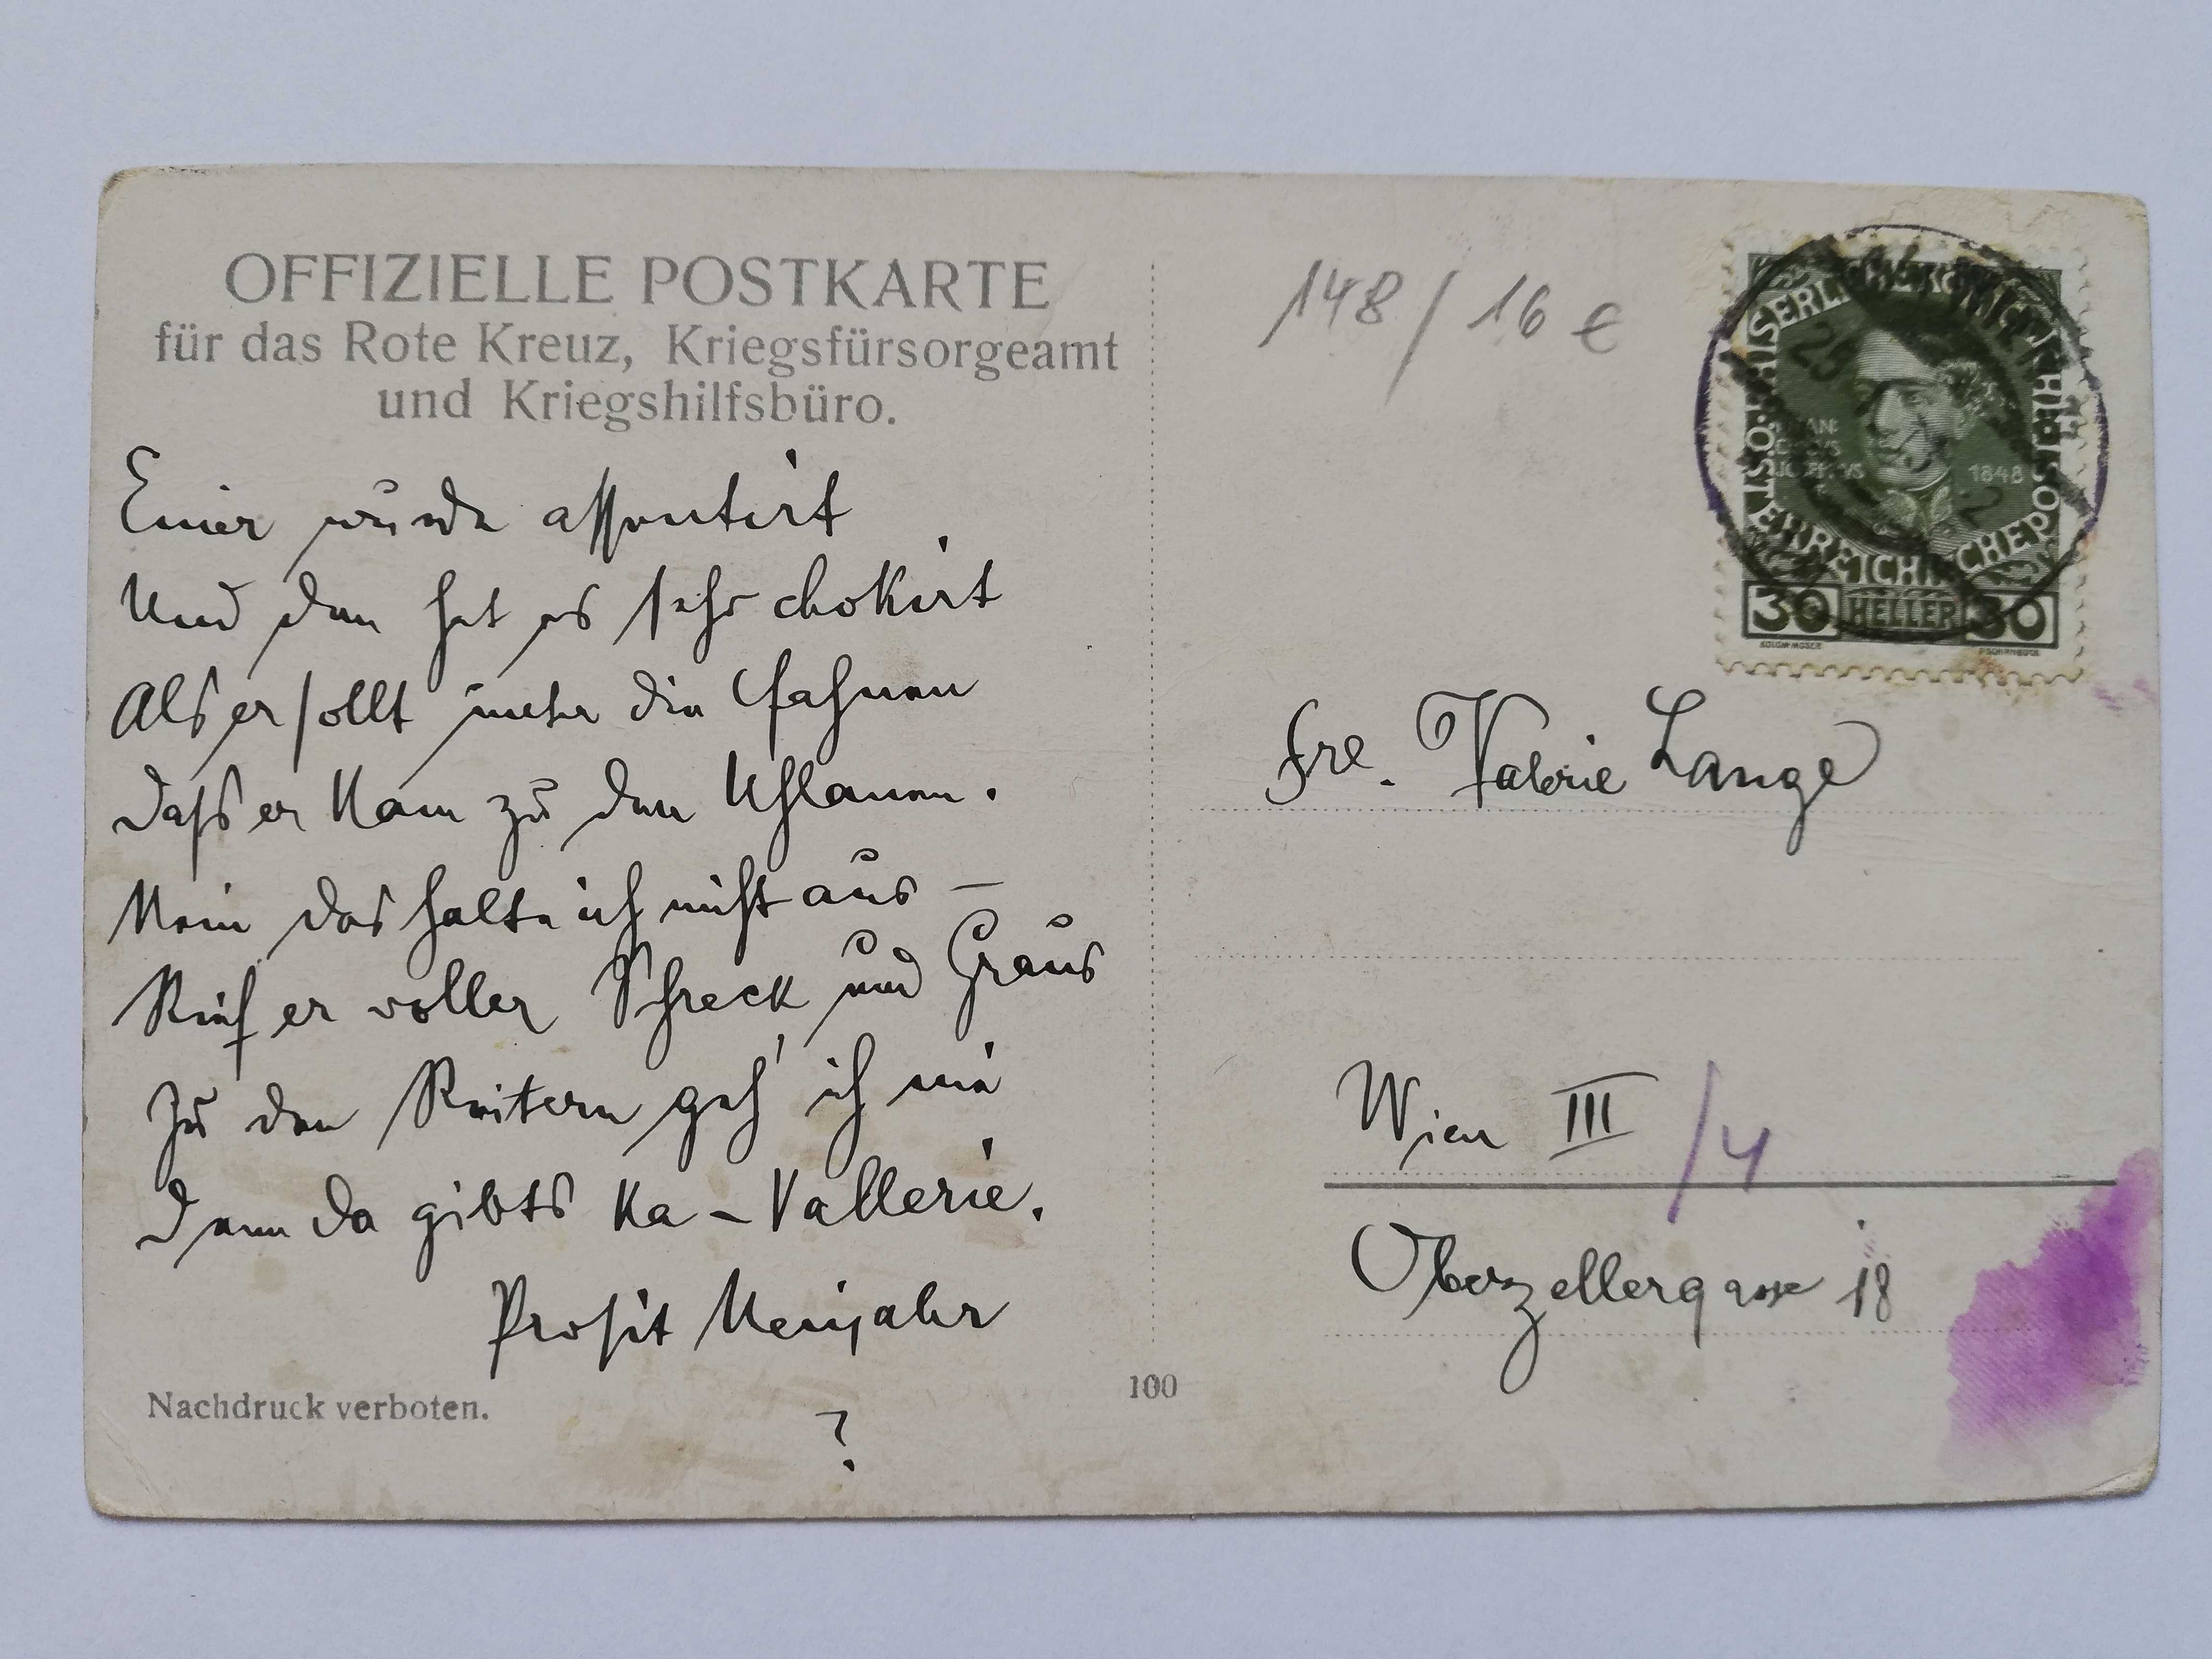 OFFIZIELLE POSTKARTE
für das Rote Kreuz, Kriegsfürsorgeamt
und Kriegshilfsbüro.
Einer wurde assentirt
Und den hat es sehr chokirt
Als er sollt unter die Fahnen
Dass er kam zu den Uhlanen.
Nein das halte ich nicht aus –
Rief er voller Schreck und Graus
Zu den Reitern geh' ich nie
Denn da gibts Ka-Vallerie.
Prosit Neujahr
?
Nachdruck verboten.
100
148/16 €
1848
30 HELLER 30
Frl. Valerie Lange
Wien III /4
Oberzellergasse 18